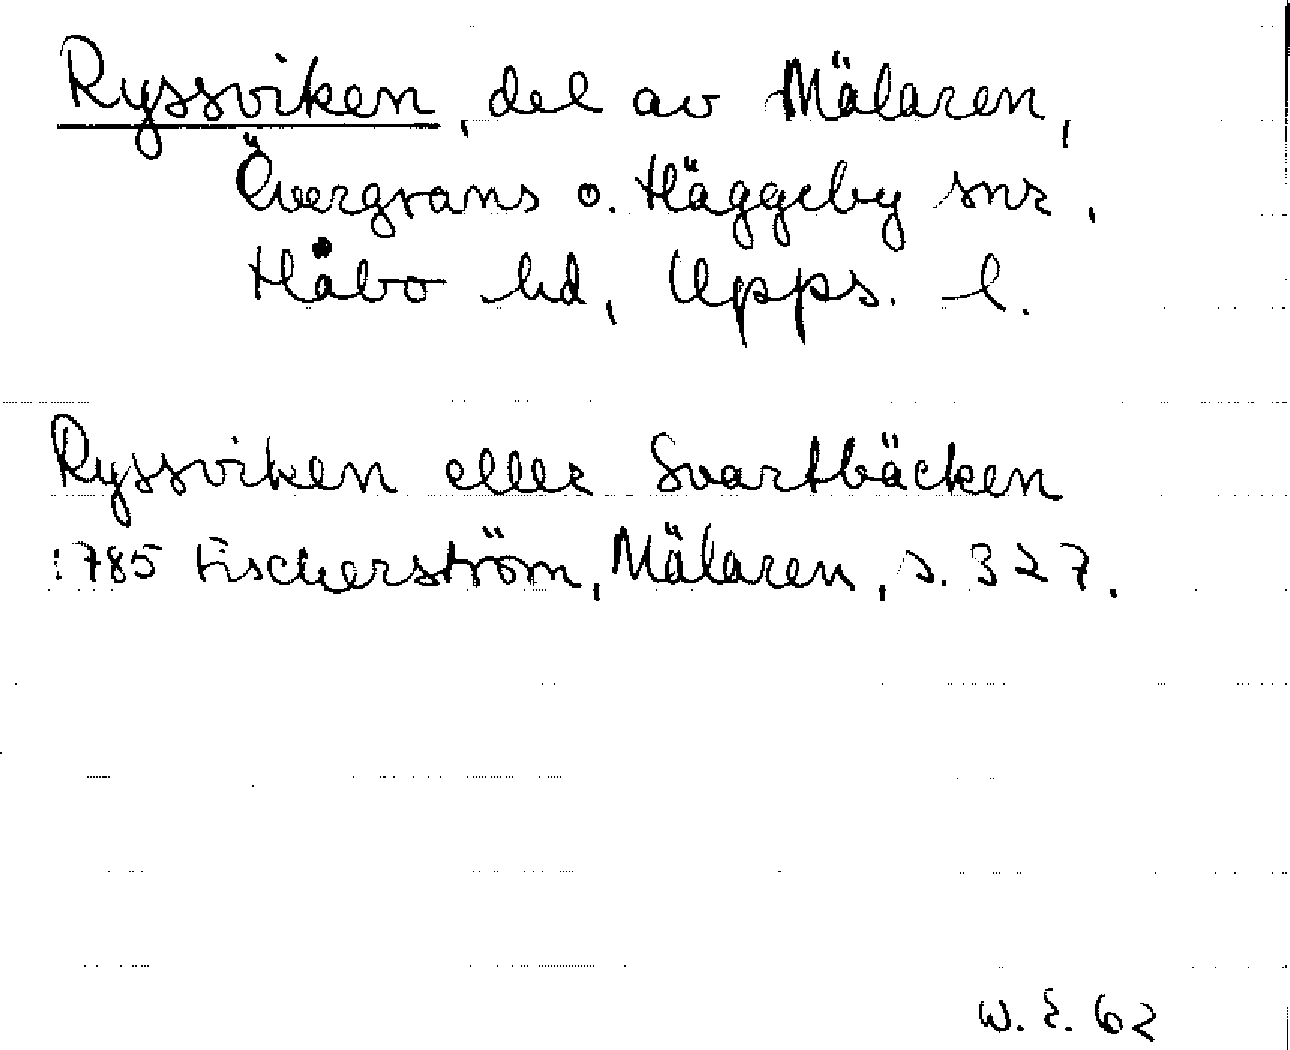 Ryssviken, del av Mälaren,
Övergrans o. Häggeby snr,
Håbo hd, Upps. l.
Ryssviken eller Svartbäcken
1785 Fischerström, Mälaren, s. 327.
W. E. 62